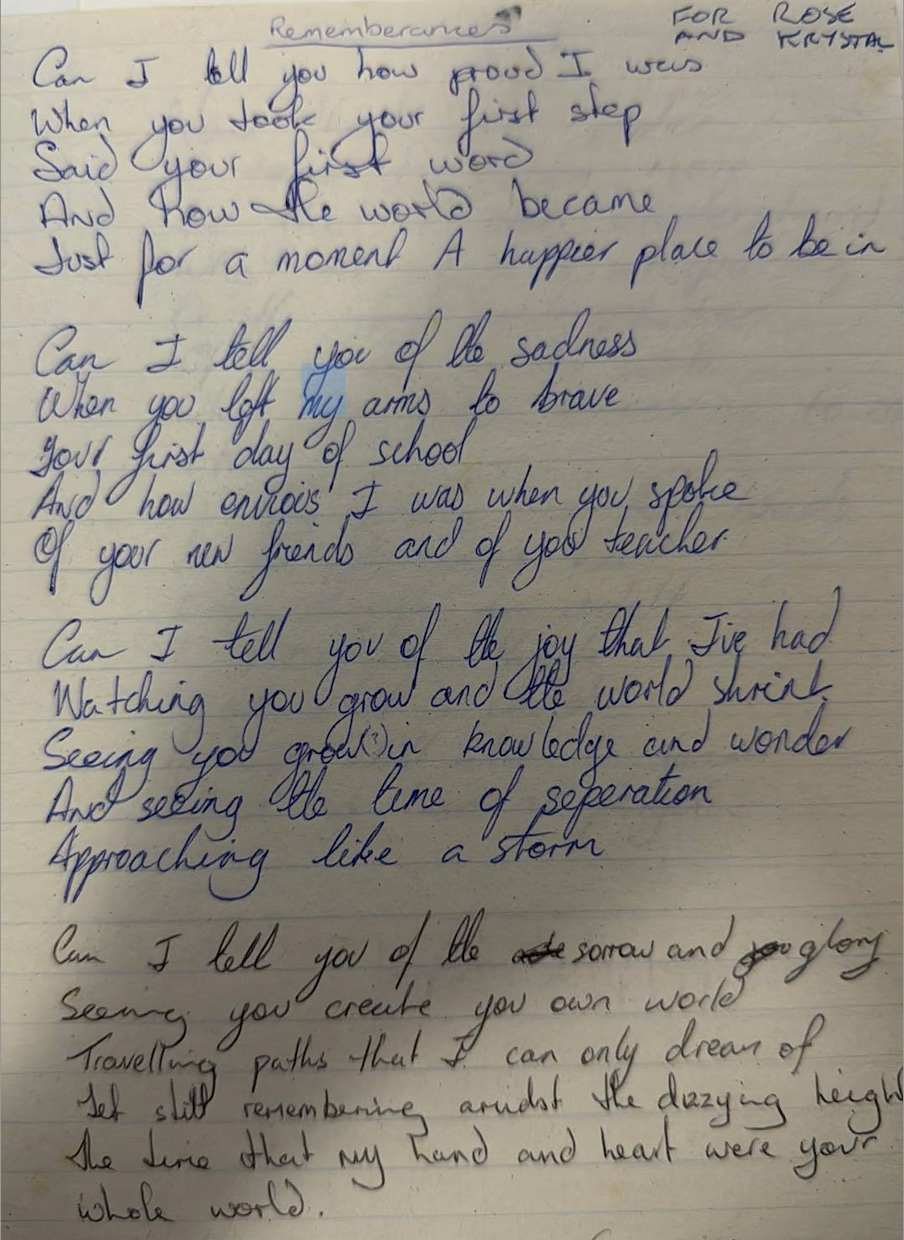 Rememberances
FOR ROSE
AND KRYSTAL
Can I tell you how proud I was
When you took your first step
Said your first word
And how the world became
Just for a moment A happier place to be in
Can I tell you of the sadness
When you left my arms to brave
Your first day of school
And how envious I was when you spoke
Of your new friends and of your teacher
Can I tell you of the joy that I've had
Watching you grow and the world shrink
Seeing you grow(?) in knowledge and wonder
And seeing the time of seperation
Approaching like a storm
Can I tell you of the sorrow and glory
Seeing you create you own world
Travelling paths that I can only dream of
Yet still remembering amidst the dizzying height
the time that my hand and heart were your
whole world.